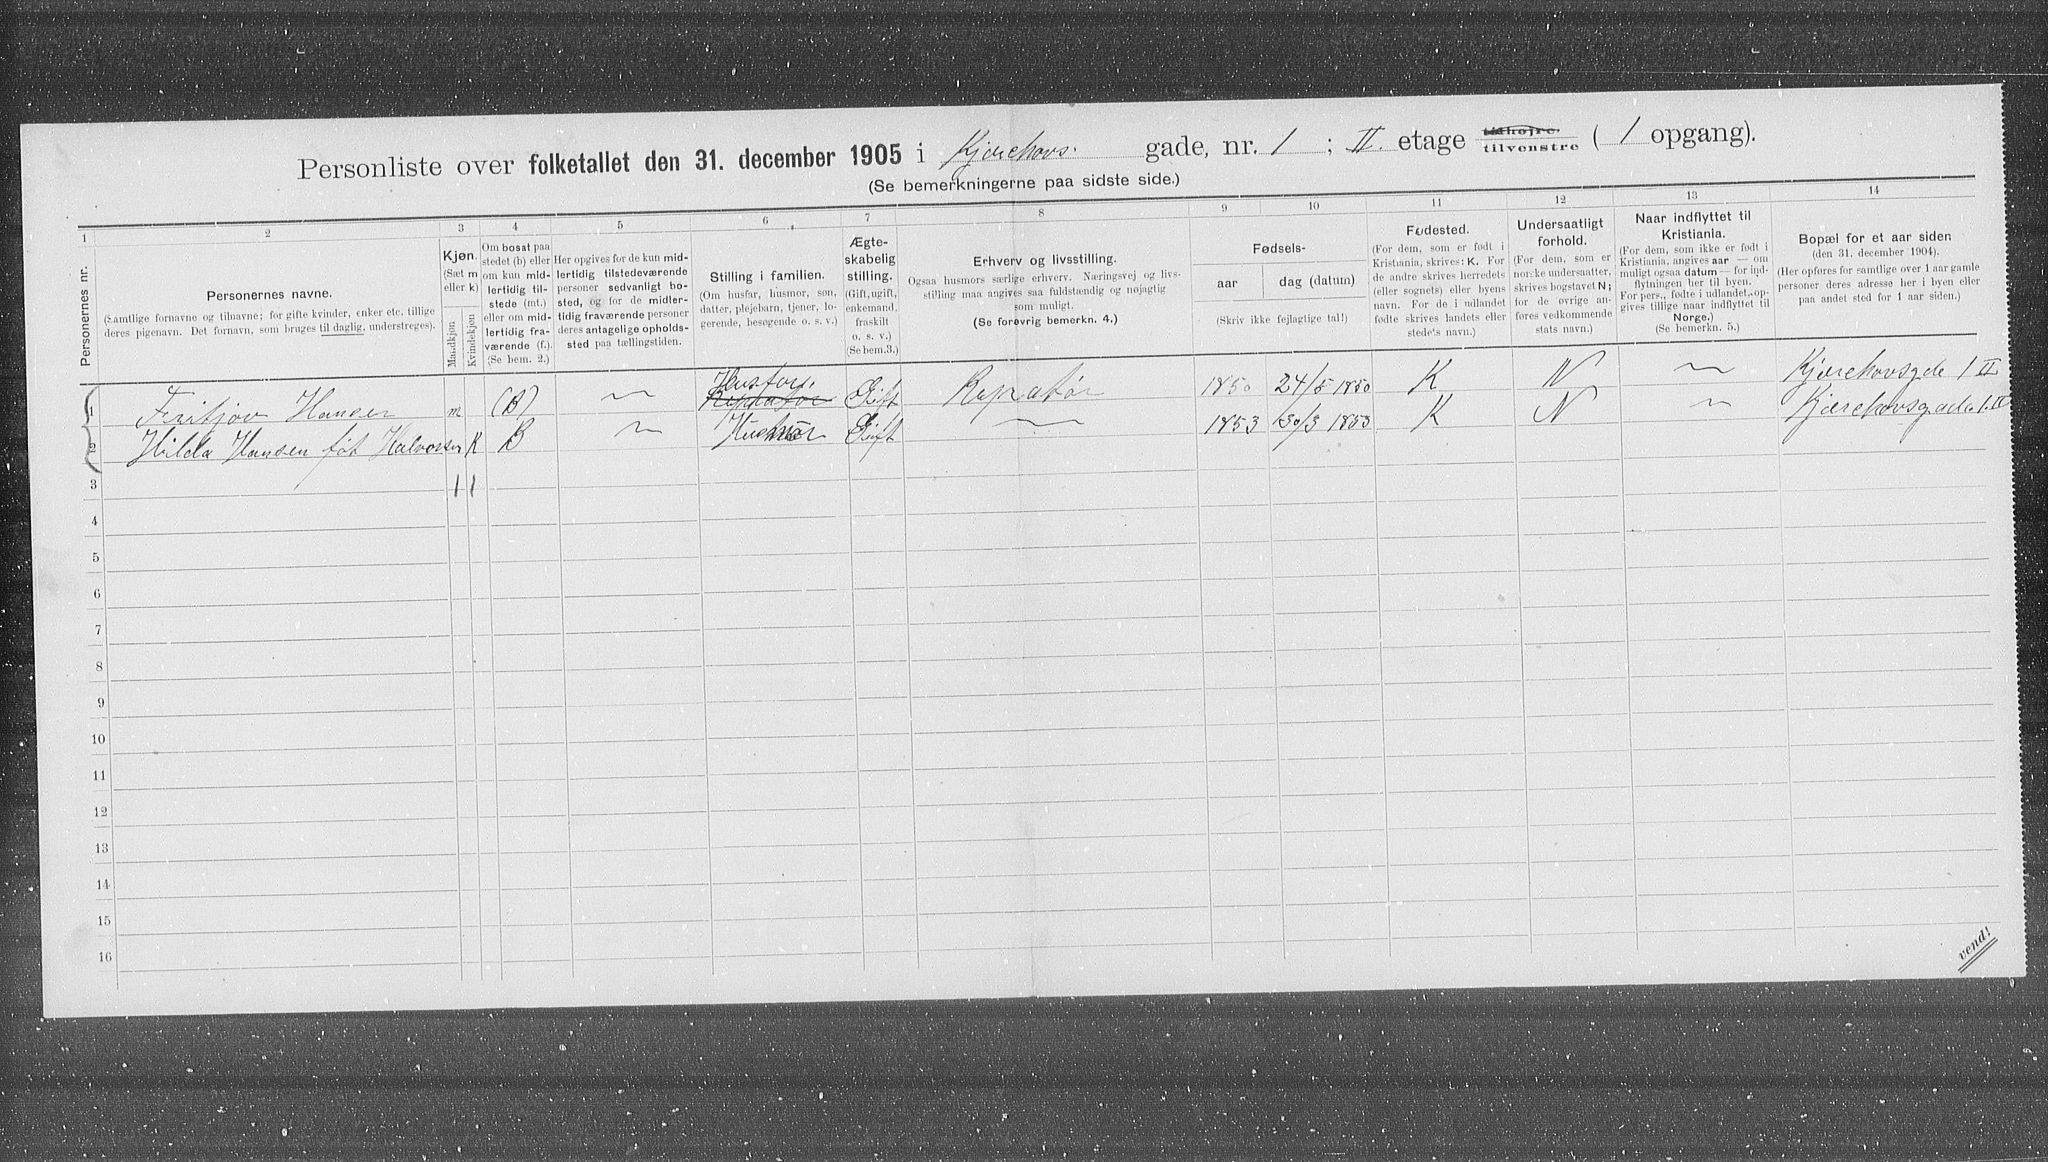 Personliste over folketallet den 31. december 1905 i Kjærehovs. gade, nr. 1 ; II. etage tilhøjre. tilvenstre ( 1 opgang).
(Se bemerkningerne paa sidste side.)
1 2 3 4 5 6 7 8 9 10 11 12 13 14
Personernes nr.
Personernes navne.
(Samtlige fornavne og tilnavne; for gifte kvinder, enker etc. tillige
deres pigenavn. Det fornavn, som bruges til daglig, understreges).
Kjøn.
(Sæt m
eller k)
Mandkjøn
Kvindekjøn
Om bosat paa
stedet (b) eller
om kun mid-
lertidig til-
stede (mt.)
eller om mid-
lertidig fra-
værende (f.).
(Se bem. 2.)
Her opgives for de kun mid-
lertidig tilstedeværende
personer sedvanligt bo-
sted, og for de midler-
tidig fraværende personer
deres antagelige opholds-
sted paa tællingstiden.
Stilling i familien.
(Om husfar, husmor, søn,
datter, plejebarn, tjener, lo-
gerende, besøgende o. s. v.)
Ægte-
skabelig
stilling.
(Gift, ugift,
enkemand,
fraskilt
o. s. v.)
(Se bem.3.)
Erhverv og livsstilling.
Ogsaa husmors særlige erhverv. Næringsvej og livs-
stilling maa angives saa fuldstændig og nøjagtig
som muligt.
(Se forøvrig bemerkn. 4.)
Fødsels-
aar
dag (datum)
(Skriv ikke fejlagtige tal!)
Fødested.
(For dem, som er født i
Kristiania, skrives: K. For
de andre skrives herredets
(eller sognets) eller byens
navn. For de i udlandet
fødte skrives landets eller
stedets navn.)
Undersaatligt
forhold.
(For dem, som er
norske undersaatter,
skrives bogstavet N;
for de øvrige an-
føres vedkommende
stats navn.)
Naar indflyttet til
Kristiania.
(For dem, som ikke er født i
Kristiania, angives aar — om
muligt ogsaa datum — for ind-
flytningen her til byen.
For pers., fødte i udlandet, op-
gives tillige naar indflyttet til
Norge.)
(Se bemerkn. 5.)
Bopæl for et aar siden
(den 31. december 1904).
(Her opføres for samtlige over 1 aar gamle
personer deres adresse her i byen eller
paa andet sted for 1 aar siden.)
1 Fritjov Hansen m (B) — Repratør Husfar. Gift Repratør 1850 24/5 1850 K N — Kjærehovsgde 1 II
2 Hilda Hansen føt Halvorsen K B — Husmor Gift — 1853 30/3 1853 K N — Kjærehovsgade 1. II
3 1 1
4
5
6
7
8
9
10
11
12
13
14
15
16
vend!